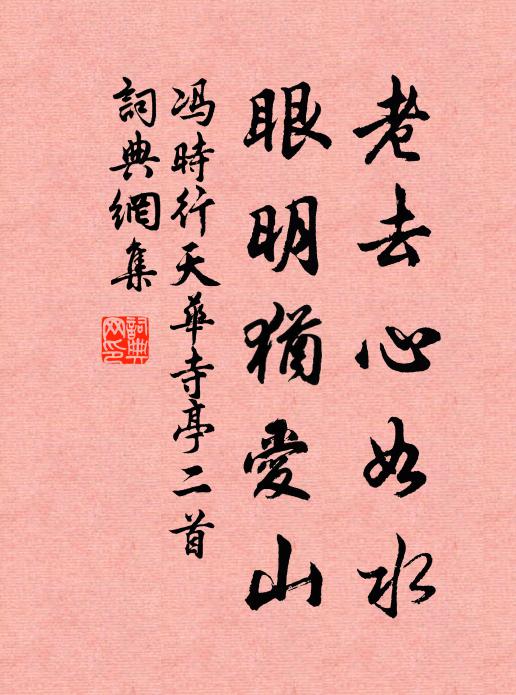 老去心如水
眼明猶愛山
冯時行天華寺亭二首
詞典網集
詞典
网印